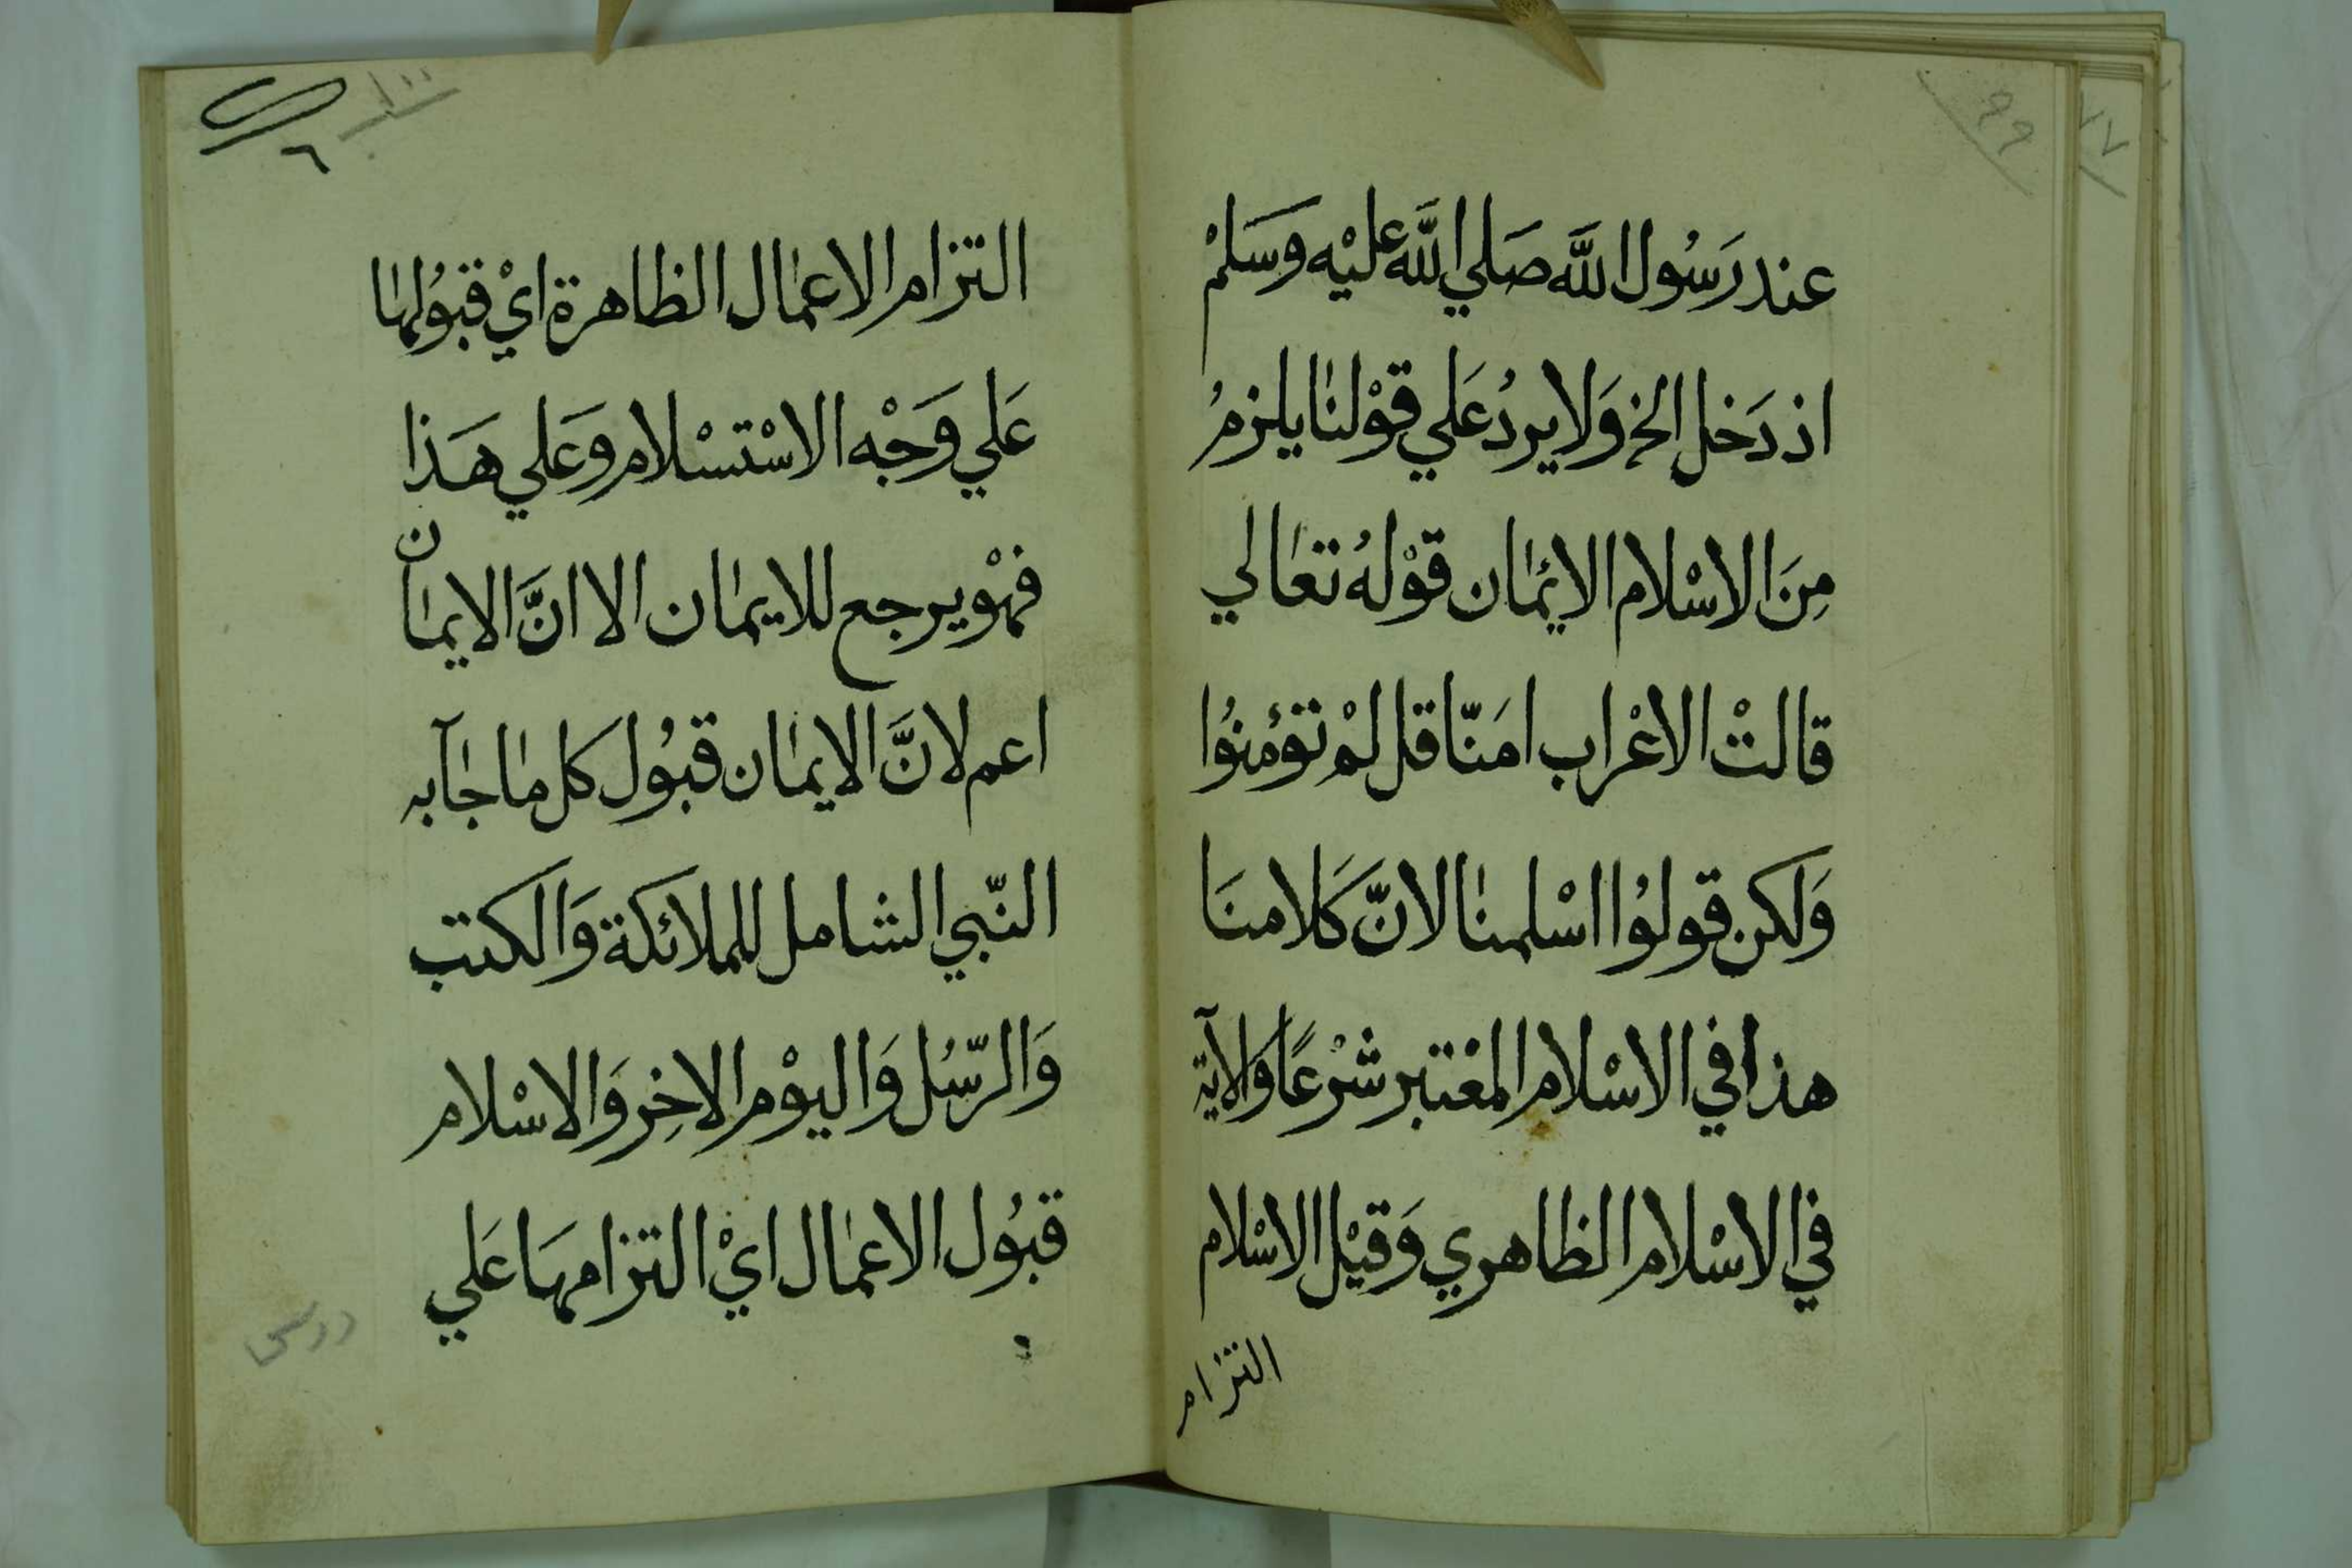 ٩٩
عند رَسُول اللَّه صَلي اللَّه عليْه وَسَلمْ
اذ دَخل الخ وَلا يردُ عَلي قوْلنا يلزمُ
مِنَ الاسْلام الايمان قوْلهُ تعالي
قالتْ الاعْراب امَنّا قل لمْ تؤمنُوا
وَلكن قولوُا اسْلمنا لانّ كَلامنَا
هذا في الاسْلام المعْتبر شرْعًا وَالآية
في الاسْلام الظاهري وَقيْل الاسْلام
التزام
١٠٠
٦
التزام الاعمال الظاهرة ايْ قبوُلها
عَلي وَجْه الاسْتسْلام وَعَلي هَذا
فهْو يرجع للايمان الا انَّ الايمان
اعم لانَّ الايمان قبُول كل ما جاۤ به
النّبي الشامل للملائكة وَالكتب
وَالرّسُل وَاليوْم الاخِر وَالاسْلام
قبُول الاعمال ايْ التزامهَا عَلي